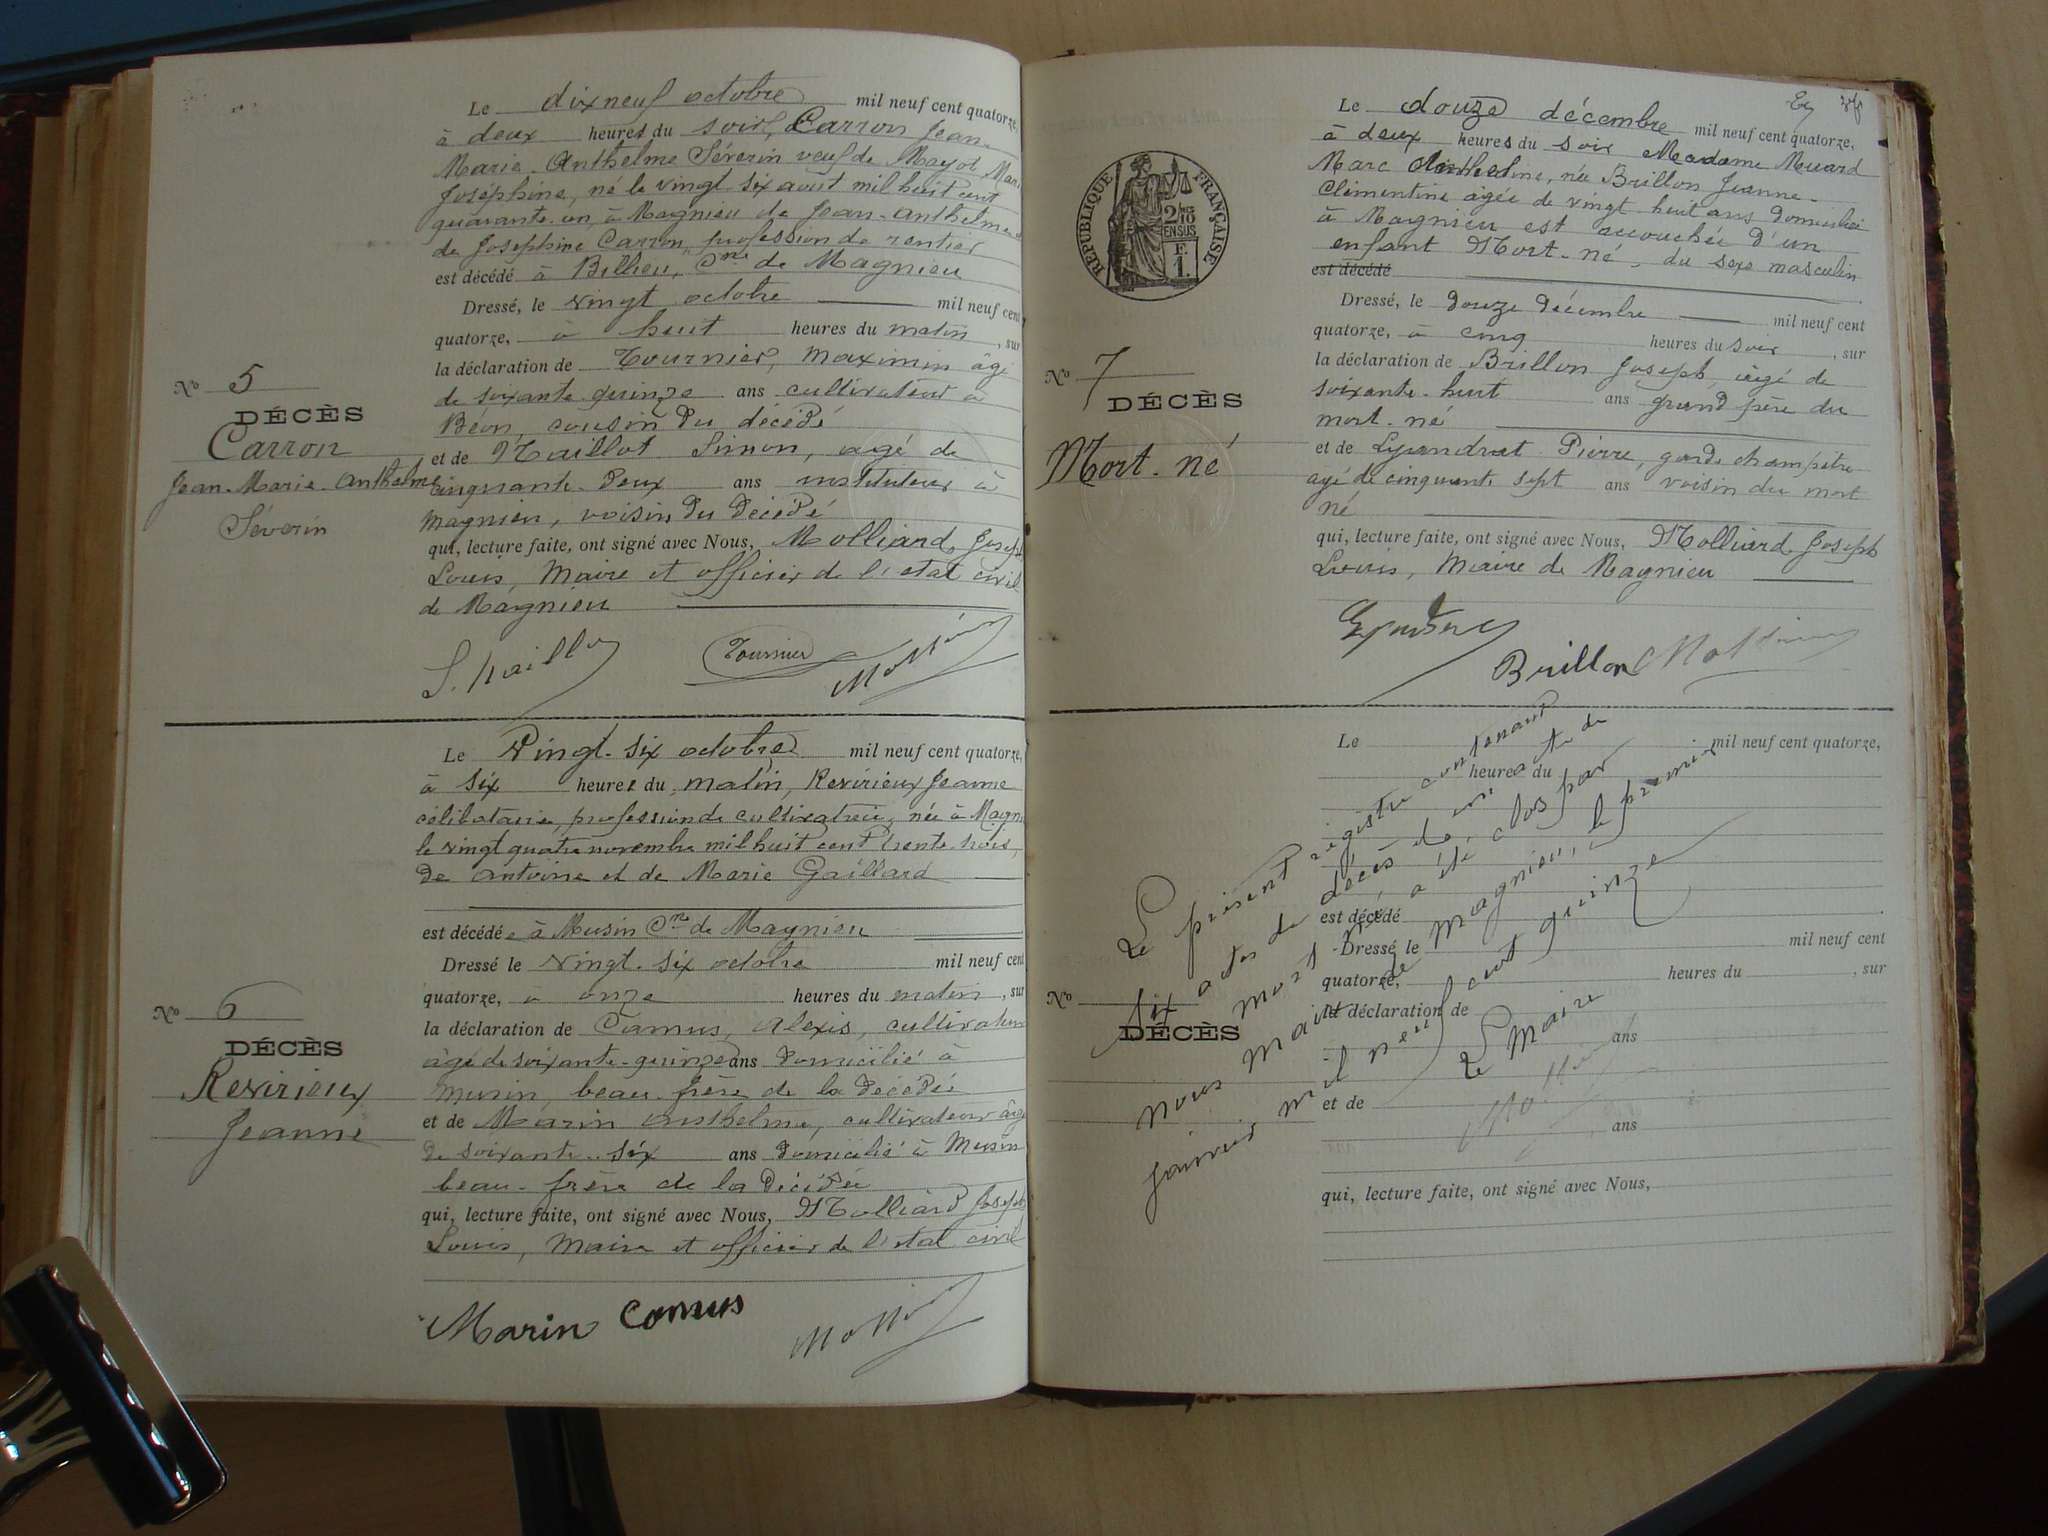 Le dixneuf octobre mil neuf cent quatorze,
à deux heures du soir, Carron Jean-
Marie-Anthelme Séverin veuf de Mayot Marie
Joséphine, né le vingt six août mil huit cent
quarante-un, à Magnieu de Jean-Anthelme et
de Josephine Carron, profession de rentier
est décédé à Billieu, Cne de Magnieu
Dressé, le vingt octobre mil neuf cent
quatorze, à huit heures du matin, sur
la déclaration de Tournier, Maximin âgé
de soixante-quinze ans cultivateur à
Béon, cousin du décédé
et de Maillot Simon, âgé de
cinquante-deux ans instituteur à
Magnieu, voisin du décédé
qui, lecture faite, ont signé avec Nous, Molliard, Joseph
Louis, Maire et officier de l'état civil
de Magnieu
No 5
DÉCÈS
Carron
Jean-Marie-Anthelme
Séverin
Tournier
Le Vingt-six octobre mil neuf cent quatorze,
à six heures du matin, Revirieux Jeanne
célibataire, profession de cultivatrice, née à Magnieu
le vingt quatre novembre mil huit cent trente-trois,
de Antoine et de Marie Gaillard
est décédée à Musin Cne de Magnieu
Dressé le vingt-six octobre mil neuf cent
quatorze, à onze heures du matin, sur
la déclaration de Camus, Alexis, cultivateur
âgé de soixante-quinze ans domicilié à
Musin, beau-frère de la décédée
et de Marin Anthelme, cultivateur âgé
de soixante-six ans domicilié à Musin
beau-frère de la décédée
qui, lecture faite, ont signé avec Nous, Molliard Joseph
Louis, Maire et officier de l'état civil
No 6
DÉCÈS
Revirieux
Jeanne
Marin Camus
RÉPUBLIQUE FRANÇAISE
2/10
EN SUS
F.
1.
Le douze décembre mil neuf cent quatorze,
à deux heures du soir Madame Muard
Marc Anthelme, née Brillon Jeanne-
Clémentine âgée de vingt huit ans domiciliée
à Magnieu est accouchée d'un
enfant Mort-né, du sexe masculin
est décédé
Dressé, le douze décembre mil neuf cent
quatorze, à cinq heures du soir, sur
la déclaration de Brillon Joseph, âgé de
soixante-huit ans grand père du
mort-né
et de Lyandrat Pierre, garde champêtre
âgé de cinquante sept ans voisin du mort
né
qui, lecture faite, ont signé avec Nous, Molliard Joseph
Louis, Maire de Magnieu
No 7
DÉCÈS
Mort-né
Brillon
Le mil neuf cent quatorze,
heures du
est décédé
Dressé le mil neuf cent
quatorze, heures du , sur
la déclaration de
ans
et de
, ans
qui, lecture faite, ont signé avec Nous,
No
DÉCÈS
Le présent registre contenant
six actes de décès et un acte de
mort né a été clos par
nous maire de Magnieu, le premier
janvier mil neuf cent quinze
Le Maire